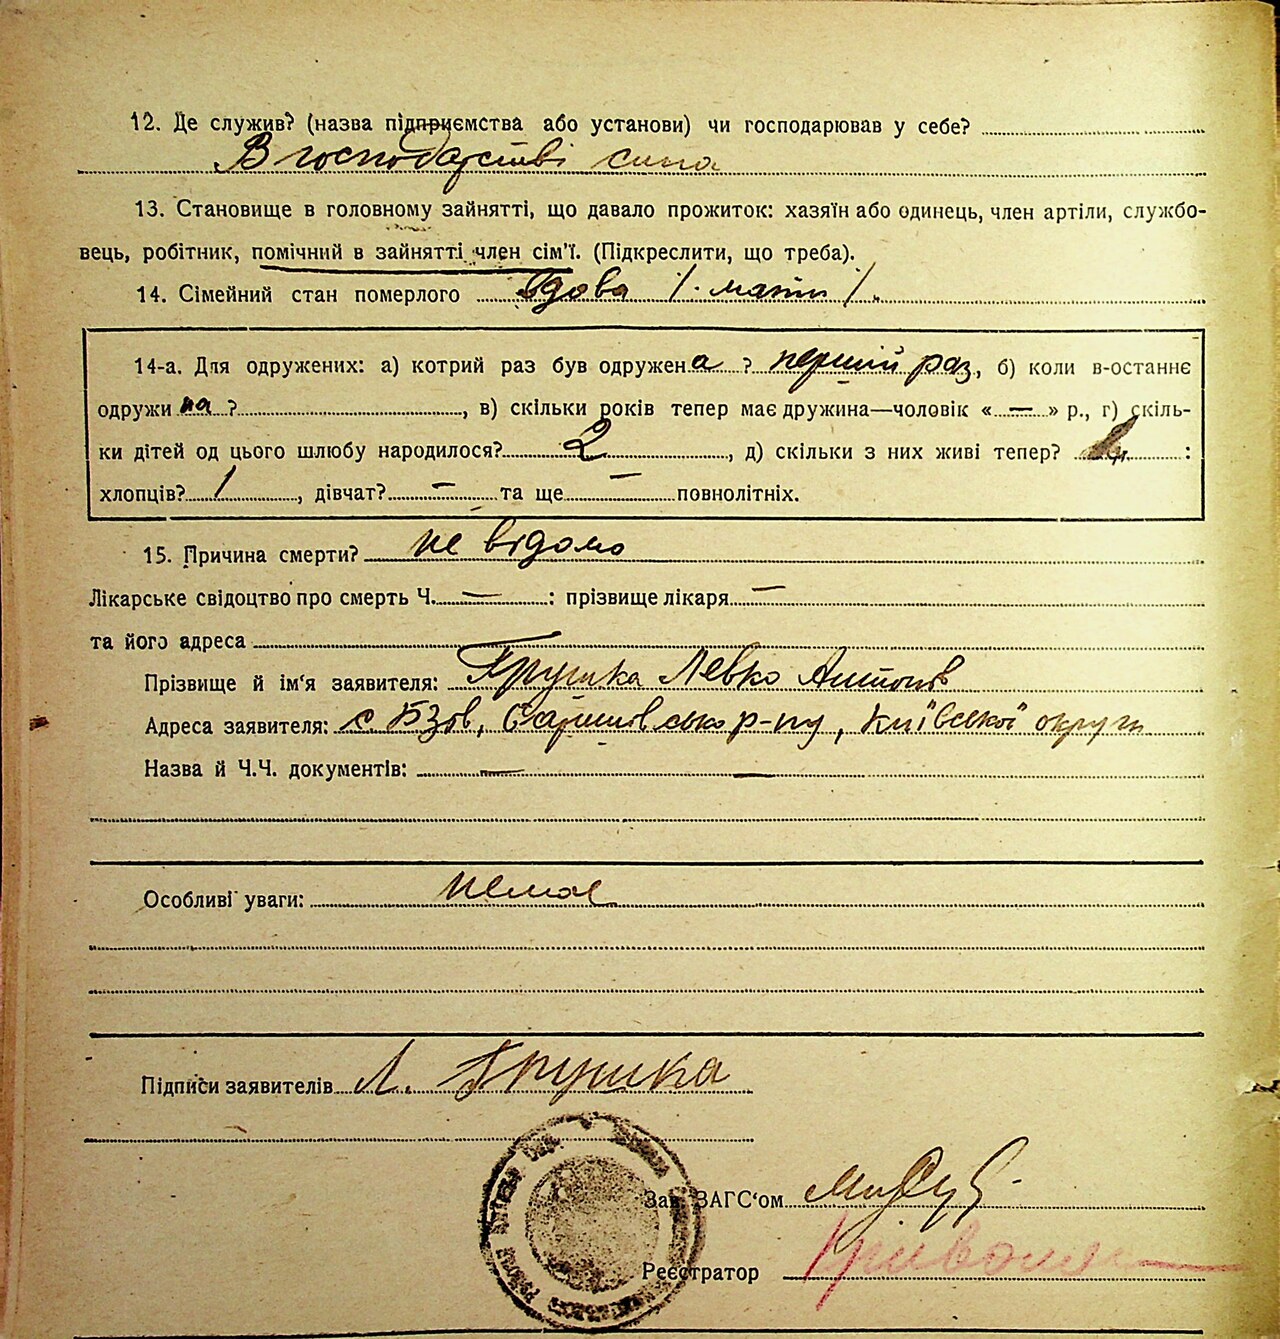 12. Де служив? (назва підприємства або установи) чи господарював у себе?
В господарстві сина
13. Становище в головному зайнятті, що давало прожиток: хазяїн або одинець, член артіли, службо-
вець, робітник, помічний в зайнятті член сім'ї. (Підкреслити, що треба).
14. Сімейний стан померлого вдова /. мати /.
14-а. Для одружених: а) котрий раз був одружена ? перший раз, б) коли в-останнє
одружи на ?, в) скільки років тепер має дружина—чоловік « — » р., г) скіль-
ки дітей од цього шлюбу народилося? 2, д) скільки з них живі тепер? :
хлопців? 1, дівчат? — та ще — повнолітніх.
15. Причина смерти? не відомо
Лікарське свідоцтво про смерть Ч. — : прізвище лікаря —
та його адреса
Прізвище й ім'я заявителя: Грушка Левко Антонів
Адреса заявителя: с. Бзів, р-ну, Київської округи
Назва й Ч.Ч. документів: — —
Особливі уваги: немає
Підписи заявителів Л. Грушка
Зав. ЗАГС'ом
Реєстратор